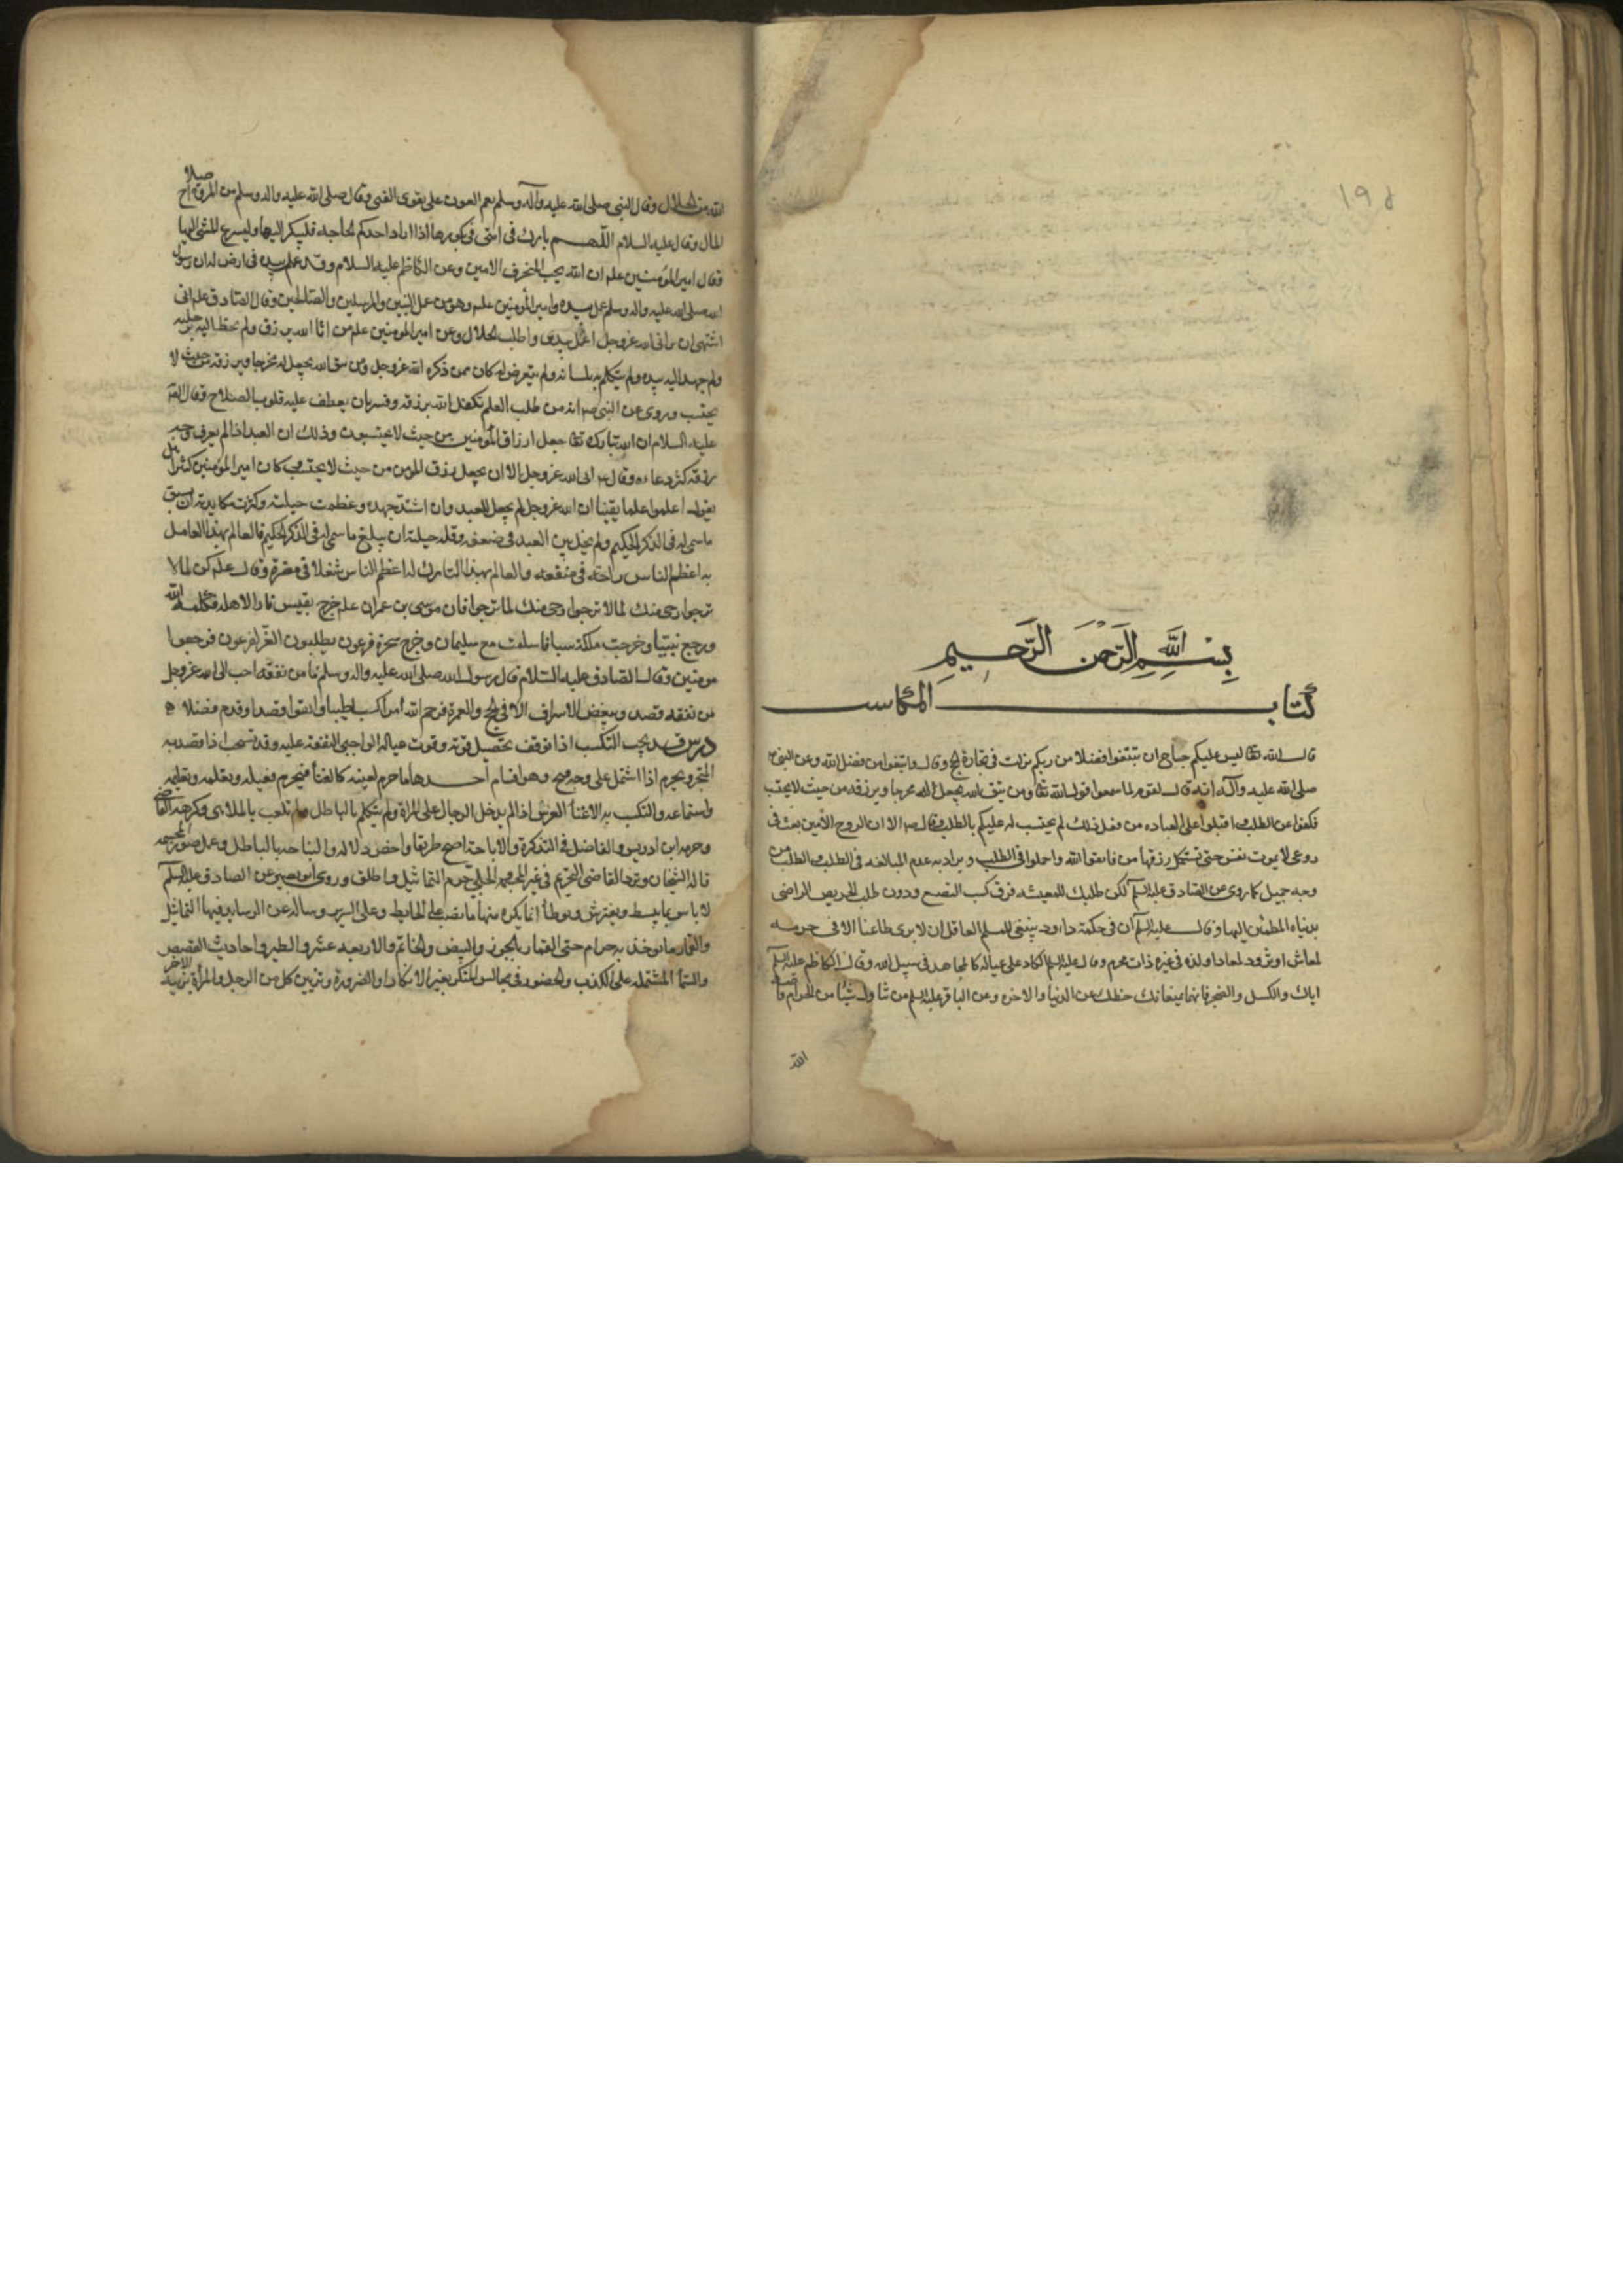 ١٩٨
بسم الله الرحمن الرحيم
كتاب المكاسب
قال الله تعا ليس عليكم جناح ان تبتغوا فضلا من ربكم نزلت في تجارة الحج وقال وابتغوا من فضل الله وعن النبي
صلى الله عليه وآله انه قال لقوم لما سمعوا قول الله تعا ومن يتق الله يجعل له مخرجا ويرزقه من حيث لا يحتسب
فكفوا عن الطلب واقبلوا على العباده من فعل ذلك لم يستجب له عليكم بالطلب وقال ص الا ان الروح الأمين نفث في
روعي لا يموت نفس حتى تستكمل رزقها فاتقوا الله واجملوا في الطلب ويراد به عدم المبالغه في الطلب والطلب من
وجه جميل كما روى عن الصادق عليه السلم لكن طلبك للمعيشه فوق كسب المضيع ودون طلب الحريص الراضي
بدنياه المطمئن اليها وقال عليه السلم ان في حكمة داود ينبغي للمسلم العاقل ان لا يرى ظاعنا الا في مرمه
لمعاش او تزود لمعاد او لذه في غيره ذات محرم وقال عليه السلم الكاد على عياله كالمجاهد في سبيل الله وقال الكاظم عليه السلم
اياك والكسل والضجر فانهما يمنعانك حظك من الدنيا والاخره وعن الباقر عليه السلم من نال شيئا من الحرام قاصه
الله
الله من الحلال وقال النبي صلى الله عليه وآله وسلم نعم العون على تقوى الغنى وقال صلى الله عليه واله وسلم من المروة اصلاح
المال وقال عليه السلام اللهم بارك في امتي في بكورها اذا اراد احدكم لحاجه فليبكر اليها وليسرع المشي اليها
وقال امير المؤمنين علم ان الله يحب المحترف الامين وعن الكاظم عليه السلام وقد عمل بيده في ارض له ان رسول
الله صلى الله عليه واله وسلم عمل بيده وامير المؤمنين علم وهو من عمل النبيين والمرسلين والصالحين وقال الصادق علم اني
اشتهي ان يراني الله عز وجل اعمل بيدي واطلب الحلال وعن امير المؤمنين علم من اتاه الله برزق ولم يخط اليه برجليه
ولم يمد اليه يده ولم يتكلم به بلسانه ولم يتعرض له كان ممن ذكره الله عز وجل ومن يتق الله يجعل له مخرجا ويرزقه من حيث لا
يحتسب وروى عن النبي ص انه من طلب العلم تكفل الله برزقه وفسر بان يعطف عليه قلوب الصلاح وقال الصا
عليه السلام ان الله تبارك تعا جعل ارزاق المؤمنين من حيث لا يحتسبون وذلك ان العبد اذا لم يعرف وجه
رزقه كثر دعاءه وقال ع ابى الله عز وجل الا ان يجعل رزق المؤمن من حيث لا يحتسب كان امير المؤمنين كثيرا ما
يقول اعلموا علما يقينا ان الله عز وجل لم يجعل للعبد وان اشتد جهده وعظمت حيلته وكثرت مكايدته ان يسبق
ما سمى له في الذكر الحكيم ولم يحل بين العبد في ضعفه وقلة حيلته ان يبلغ ما سمى له في الذكر الحكيم فالعالم بهذا العامل
به اعظم الناس راحة في منفعته والعالم بهذا التارك له اعظم الناس شغلا في مضرة وقال علم كن لما لا
ترجوا رجى منك لما ترجوا فان موسى بن عمران علم خرج يقتبس نارا لاهله فكلمه الله
ورجع نبيا وخرجت ملكة سبا فاسلمت مع سليمان وخرج سحرة فرعون يطلبون العز لفرعون فرجعوا
مومنين وقال الصادق عليه السلام قال رسول الله صلى الله عليه واله وسلم ما من نفقه احب الى الله عز وجل
من نفقه قصد ويبغض الاسراف الا في الحج والعمرة فرحم الله امرا كسب طيبا وانفق قصدا وقدم فضلا
درس يجب التكسب اذا توقف تحصيل قوته وقوت عياله الواجبي النفقة عليه وقد يستحب اذا قصد به
المتجر ويحرم اذا اشتمل على وجه قبيح وهو اقسام احدها ما حرم لعينه كالغناء فيحرم فعله وتعلمه وتعليمه
واستماعه والتكسب به الا غناء العرس اذا لم يدخل الرجال على المراة ولم يتكلم بالباطل ولم تلعب بالملاهي وكرهه القاضي
وحرمه ابن ادريس والفاضل في التذكرة والاباحة اصح طريقا واخص دلاله والنياحه بالباطل وعمل الصور المجسمه
قاله الشيخان وتردد القاضي التحريم في غير المجسمه الحلبي حرم التماثيل واطلق وروى ابو بصير عن الصادق عليه السلم
لا باس بما يبسط ويفترش ويوطأ انما يكره منها ما نصب على الحايط وعلى السرير وسأله عن الوسايد فيها التماثيل
والقمار وما يوخذ به حرام حتى القمار بالجوز والبيض والخاتم والاربعه عشر والطير واحاديث القصص
والسمر المشتمله على الكذب والحضور في مجالس المنكر بغير الانكار او الضرورة وتزيين كل من الرجل والمرأة بزينه الاخر